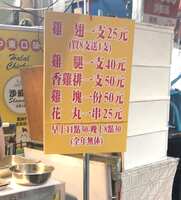 雞 翅 一支25元
(買8支送1支)
雞 腿 一支40元
香雞排一支50元
雞 塊 一份50元
花 丸 一串25元
早上11點30-晚上8點30
(全年無休)
Halal
Chicken